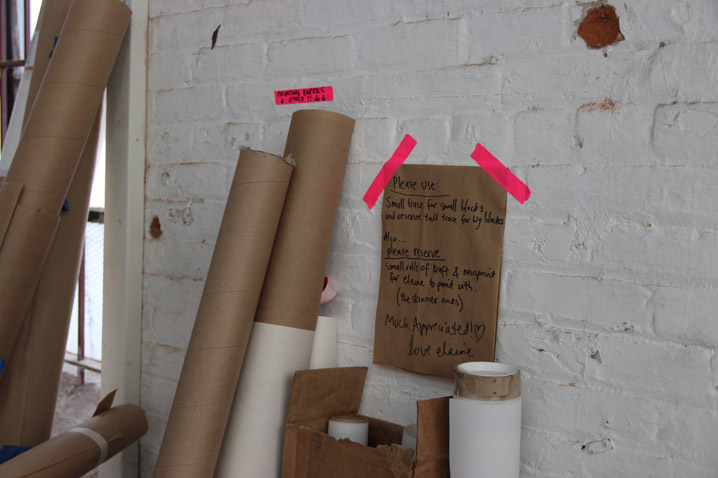 PRINTING PAPERS
↓ ONLY !! ↓↓
Please use:
Small trace for small blocks
and reserve tall trace for big blocks
Also...
please reserve
small rolls of kraft & newsprint
for elaine to print with.
(the skinnier ones)
Much Appreciated!♡
love elaine